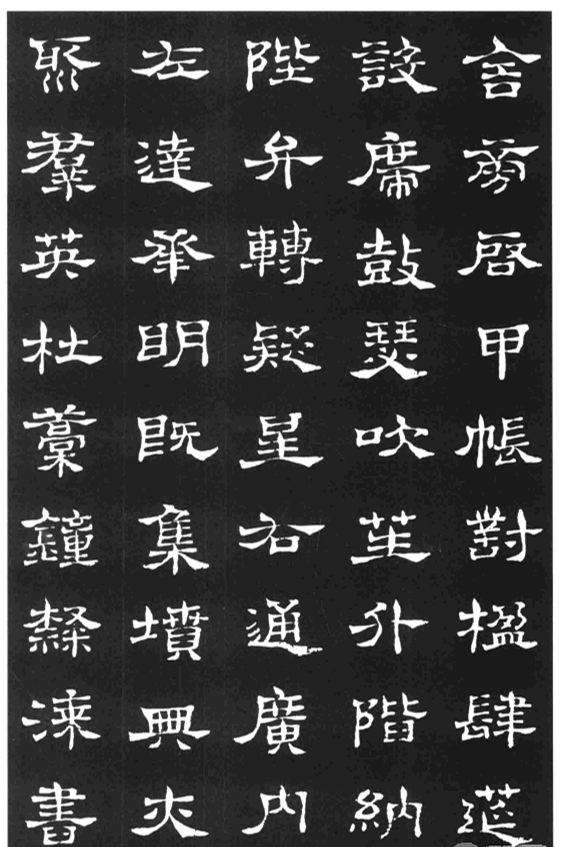 舍旁启甲帳對楹肆筵
設席鼓瑟吹笙升階納
陛弁轉疑星右通廣内
左達承明既集墳典亦
聚羣英杜藁鐘隸漆書